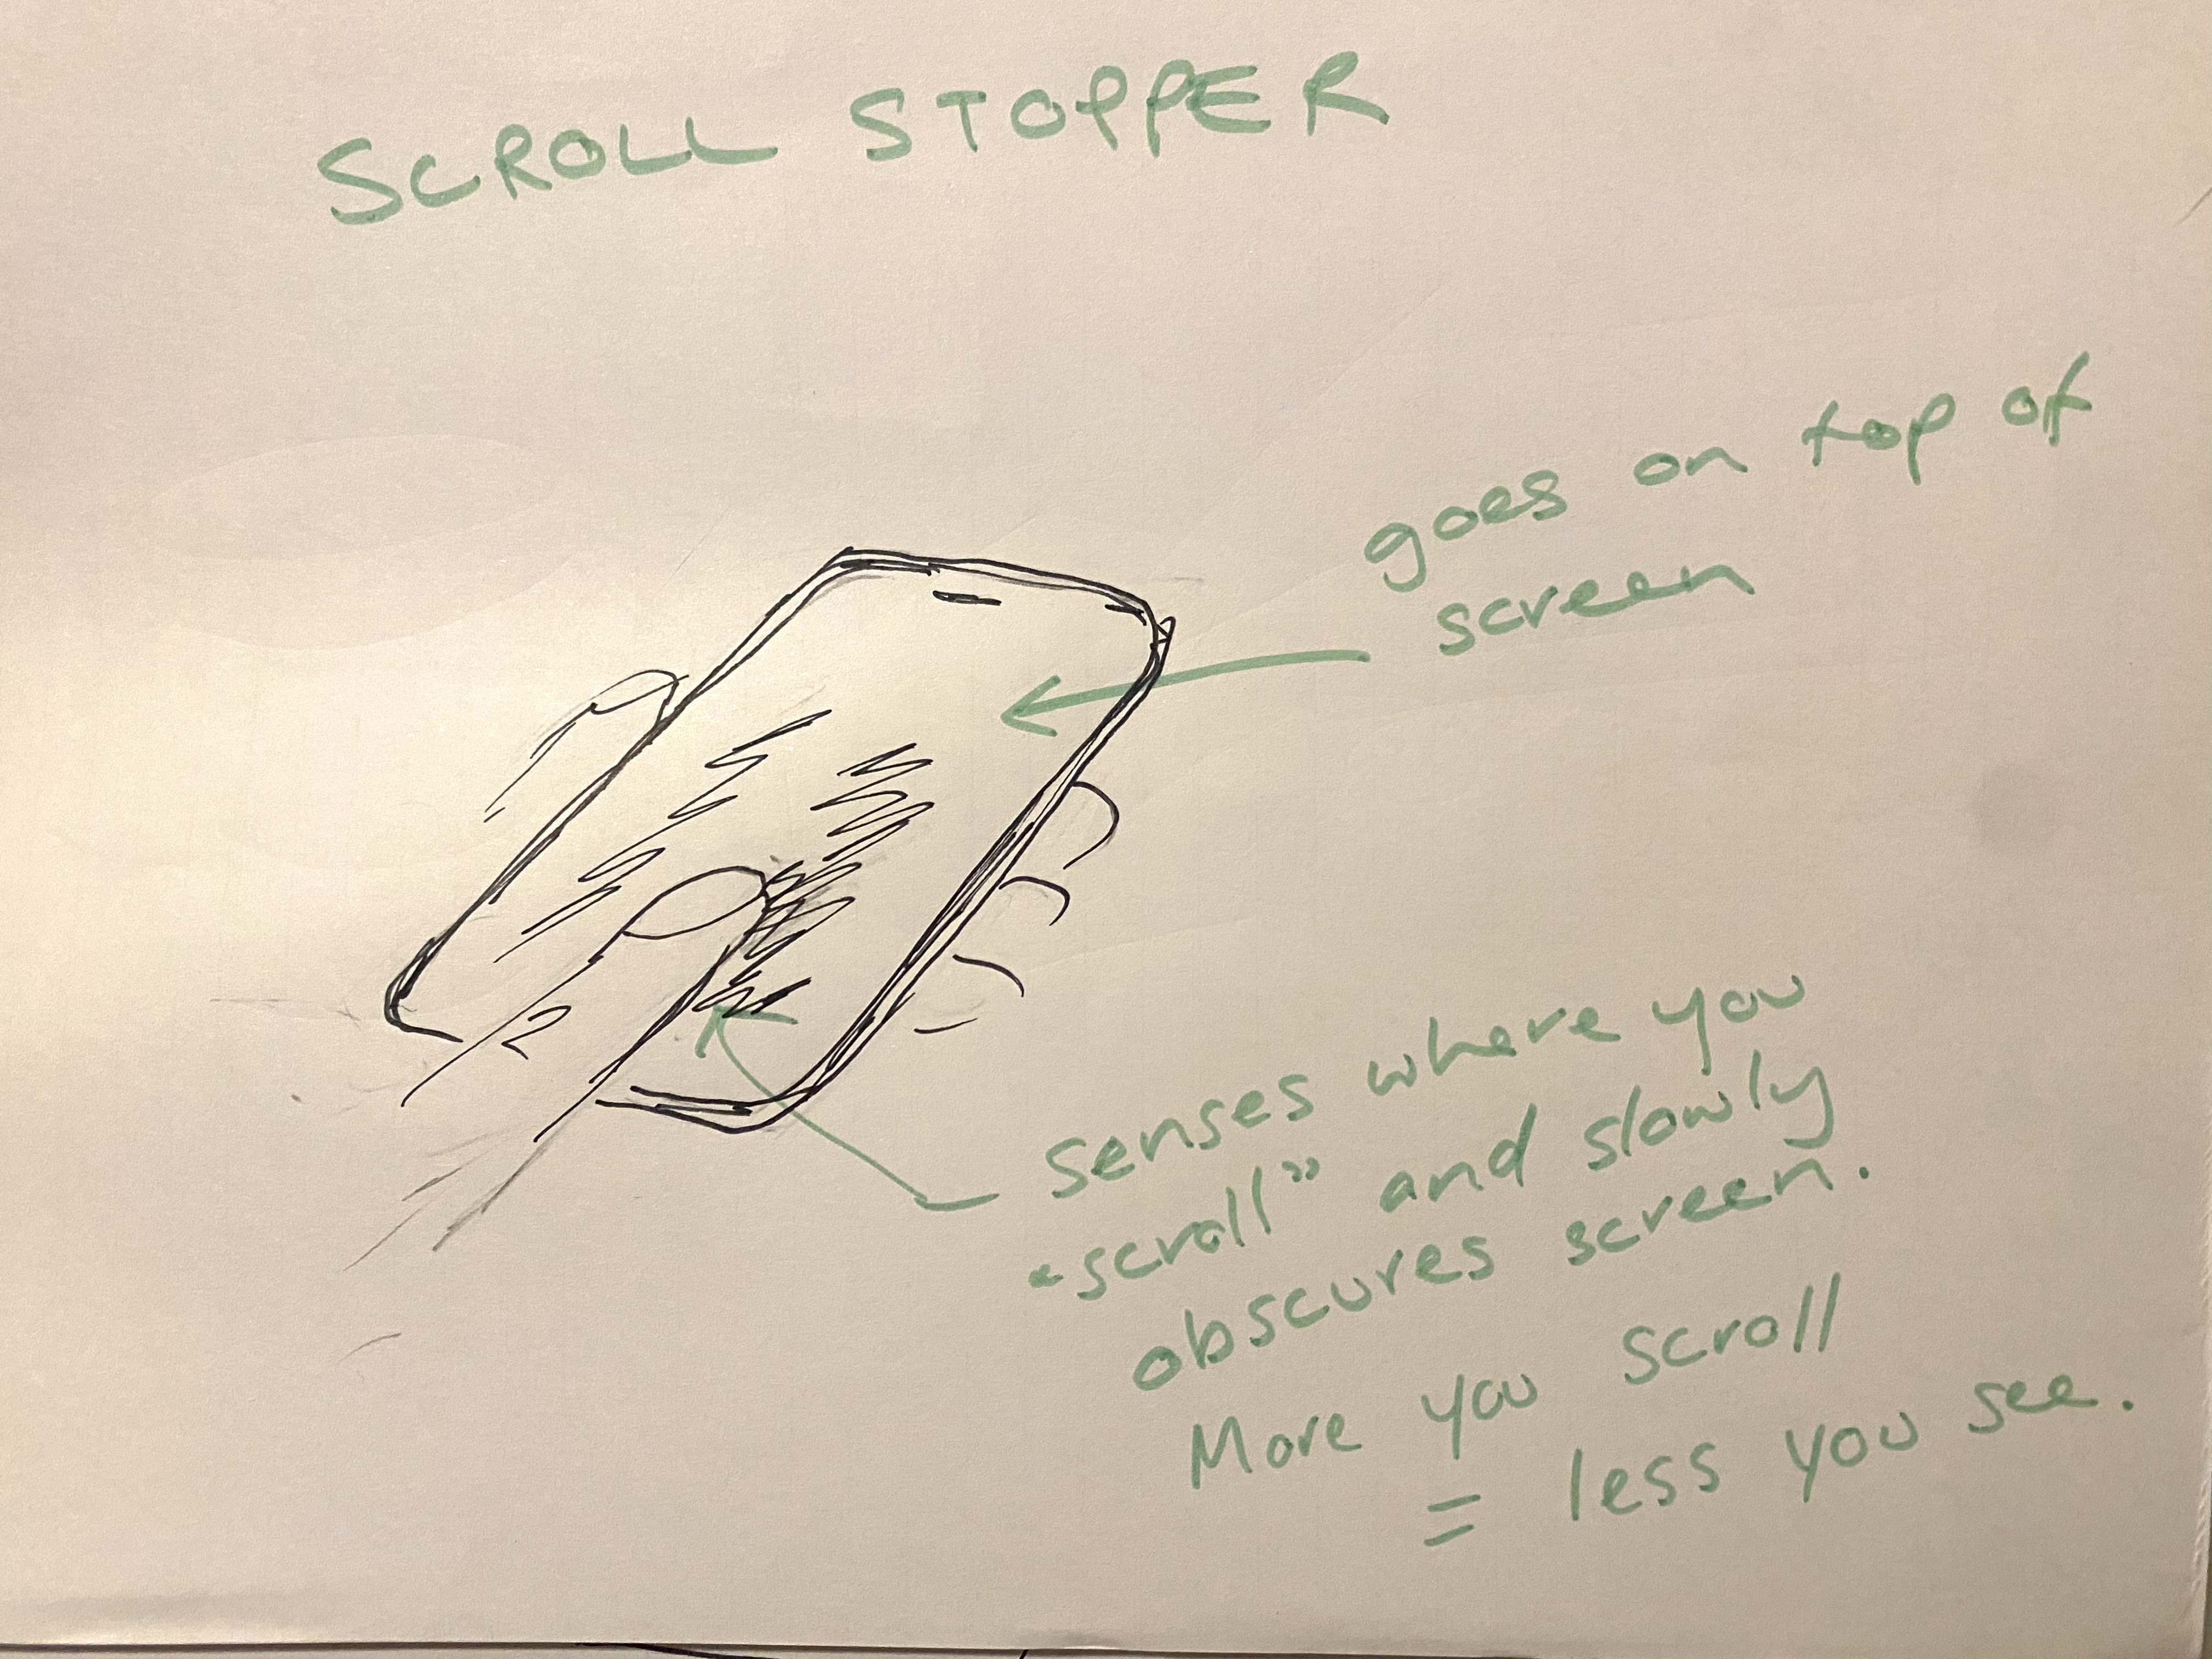 SCROLL STOPPER
goes on top of
screen
senses where you
"scroll" and slowly
obscures screen.
More you scroll
= less you see.